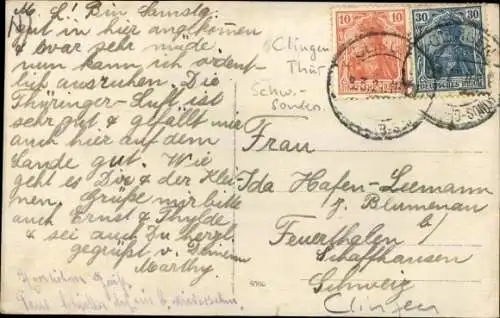 M. L! Bin Samstg.
gut in hier angekommen
& zwar sehr müde,
nun kann ich ordent-
lich ausruhen. Die
Thüringer-Luft ist
sehr gut & gefällt mir
auch hier auf dem
Lande gut. Wie
geht es Dir & der Klei-
nen. Grüße mir bitte
auch Ernst & Thylde
& sei auch Du herzl.
gegrüßt v. Deinem
Marthy
10
30
DEUTSCHES REICH
Clingen
Thür
Schw.-
Sonders.
Frau
Ida Hafen-Leemann
z. Blumenau
b/
Feuerthalen
Schaffhausen
Schweiz
Clingen